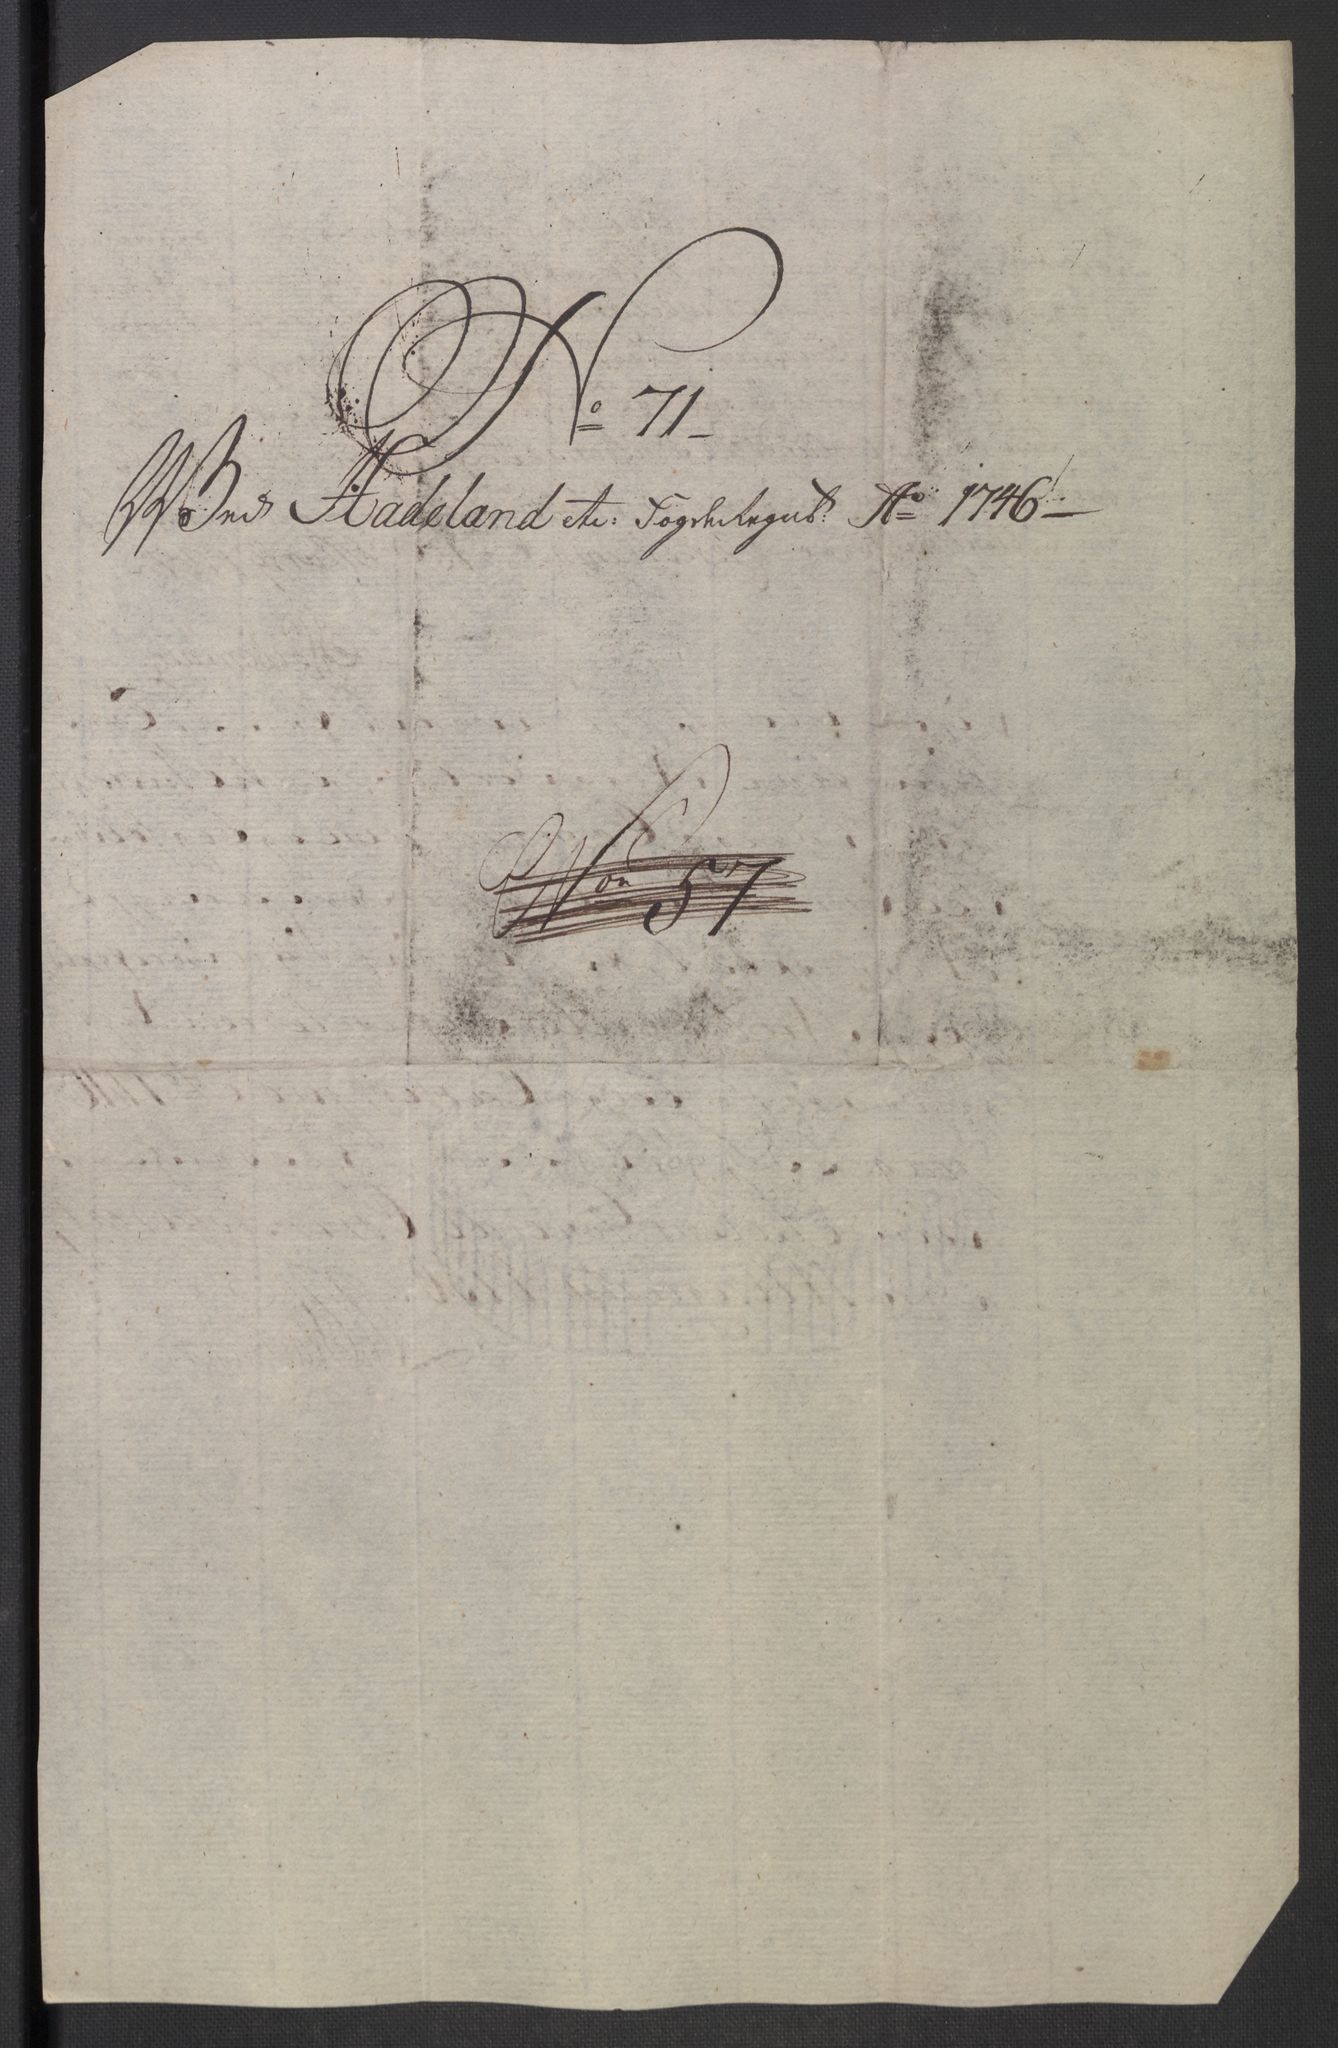 No 71
Ved Hadeland etc: Fogderiregnsk: Ao 1746
No 57